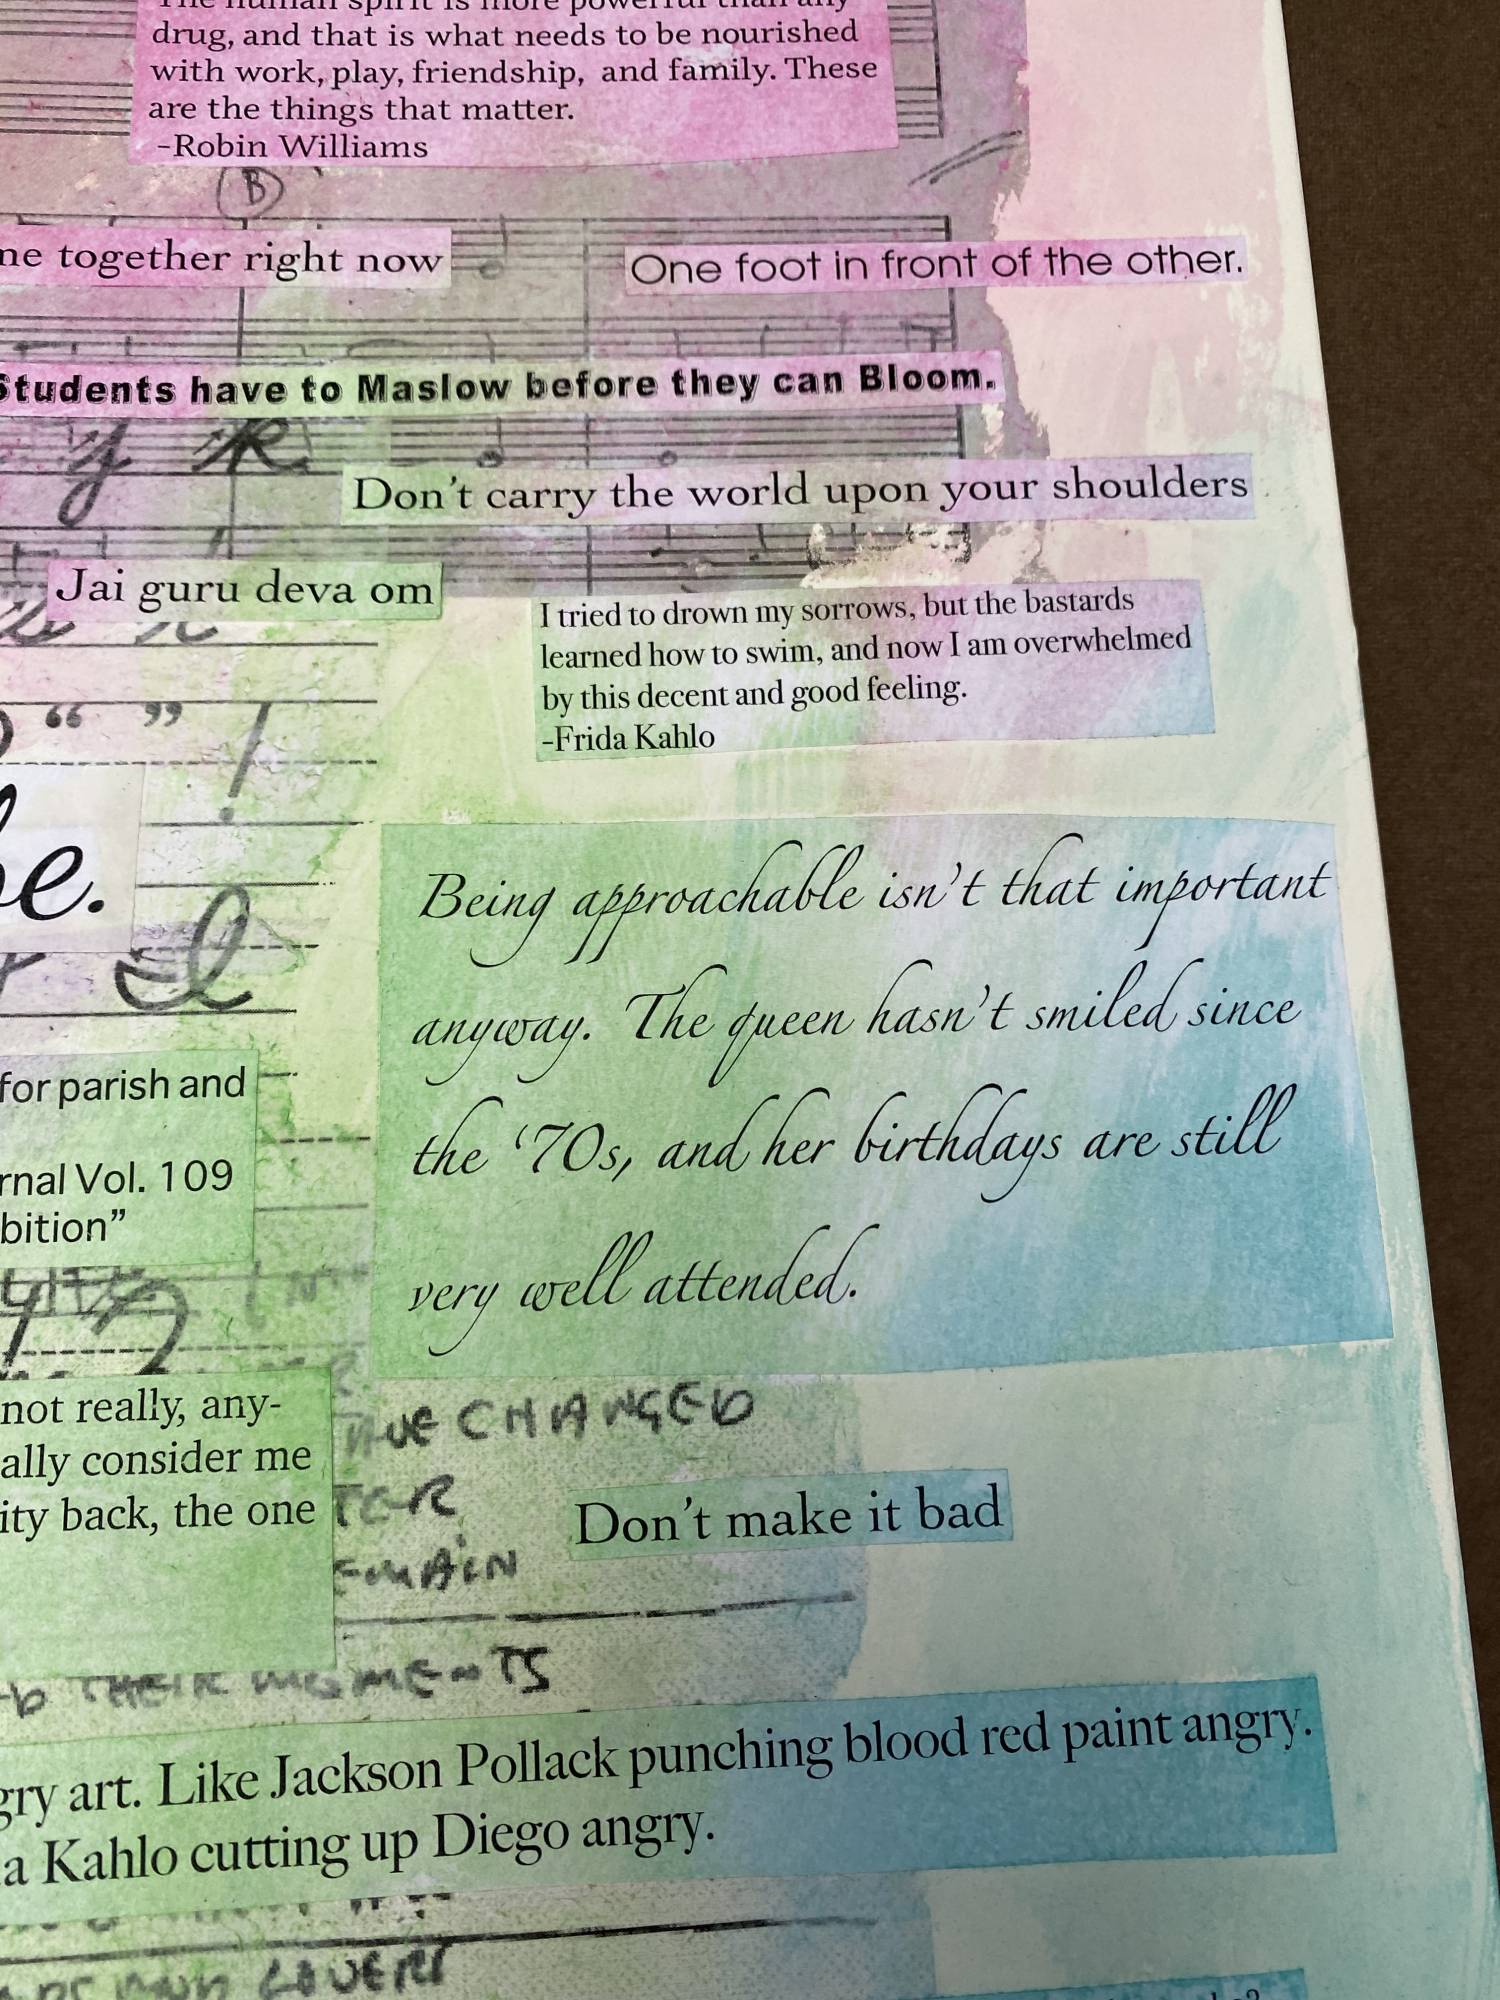 The human spirit is more powerful than any
drug, and that is what needs to be nourished
with work, play, friendship, and family. These
are the things that matter.
-Robin Williams
B
me together right now
One foot in front of the other.
Students have to Maslow before they can Bloom.
y R
Don't carry the world upon your shoulders
Jai guru deva om
I tried to drown my sorrows, but the bastards
learned how to swim, and now I am overwhelmed
by this decent and good feeling.
-Frida Kahlo
“ ” !
be.
I
Being approachable isn't that important
anyway. The queen hasn't smiled since
the ‘70s, and her birthdays are still
very well attended.
for parish and
rnal Vol. 109
bition”
not really, any-
ally consider me
ity back, the one
CHANGED
Don't make it bad
REMAIN
THEIR MOMENTS
gry art. Like Jackson Pollack punching blood red paint angry.
a Kahlo cutting up Diego angry.
LOVERS